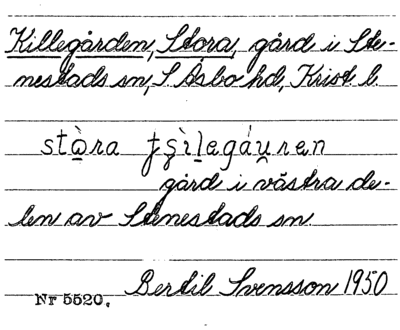 Killegården, Stora, gård i Ste-
nestads sn, S. Åsbo hd, Krist. l.
stò̱ra ʈʂìḻegáu̯ren
gård i västra de-
len av Stenestads sn.
Bertil Svensson 1950
Nr 5520.